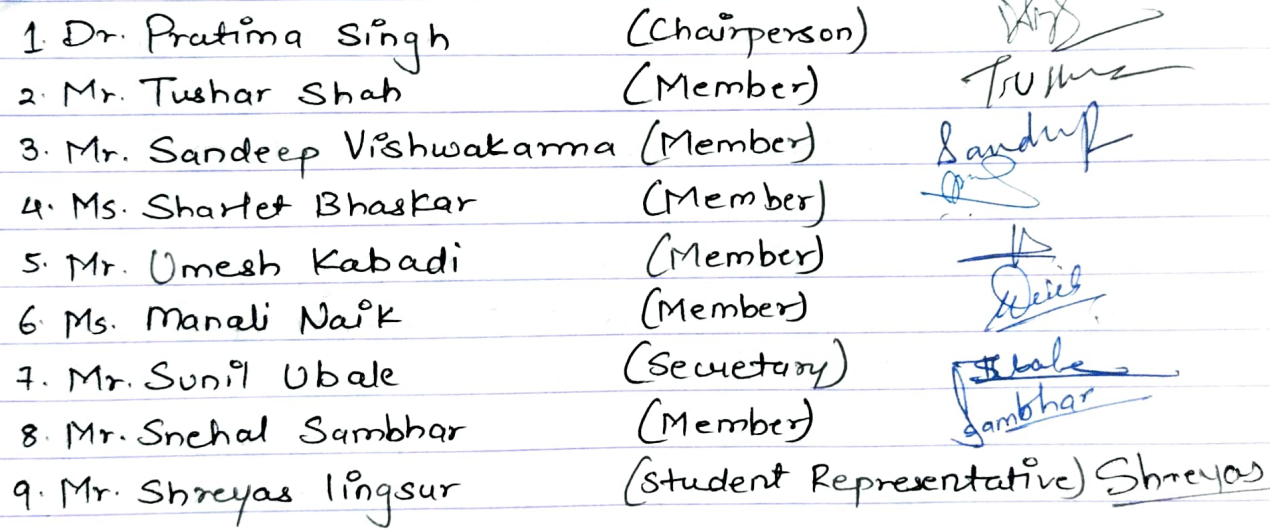 1. Dr. Pratima Singh (Chairperson)
2. Mr. Tushar Shah (Member)
3. Mr. Sandeep Vishwakarma (Member) Sandeep
4. Ms. Sharlet Bhaskar (Member)
5. Mr. Umesh Kabadi (Member)
6. Ms. Manali Naik (Member)
7. Mr. Sunil Ubale (Secretary) SUbale
8. Mr. Snehal Sambhar (Member) Sambhar
9. Mr. Shreyas lingsur (Student Representative) Shreyas